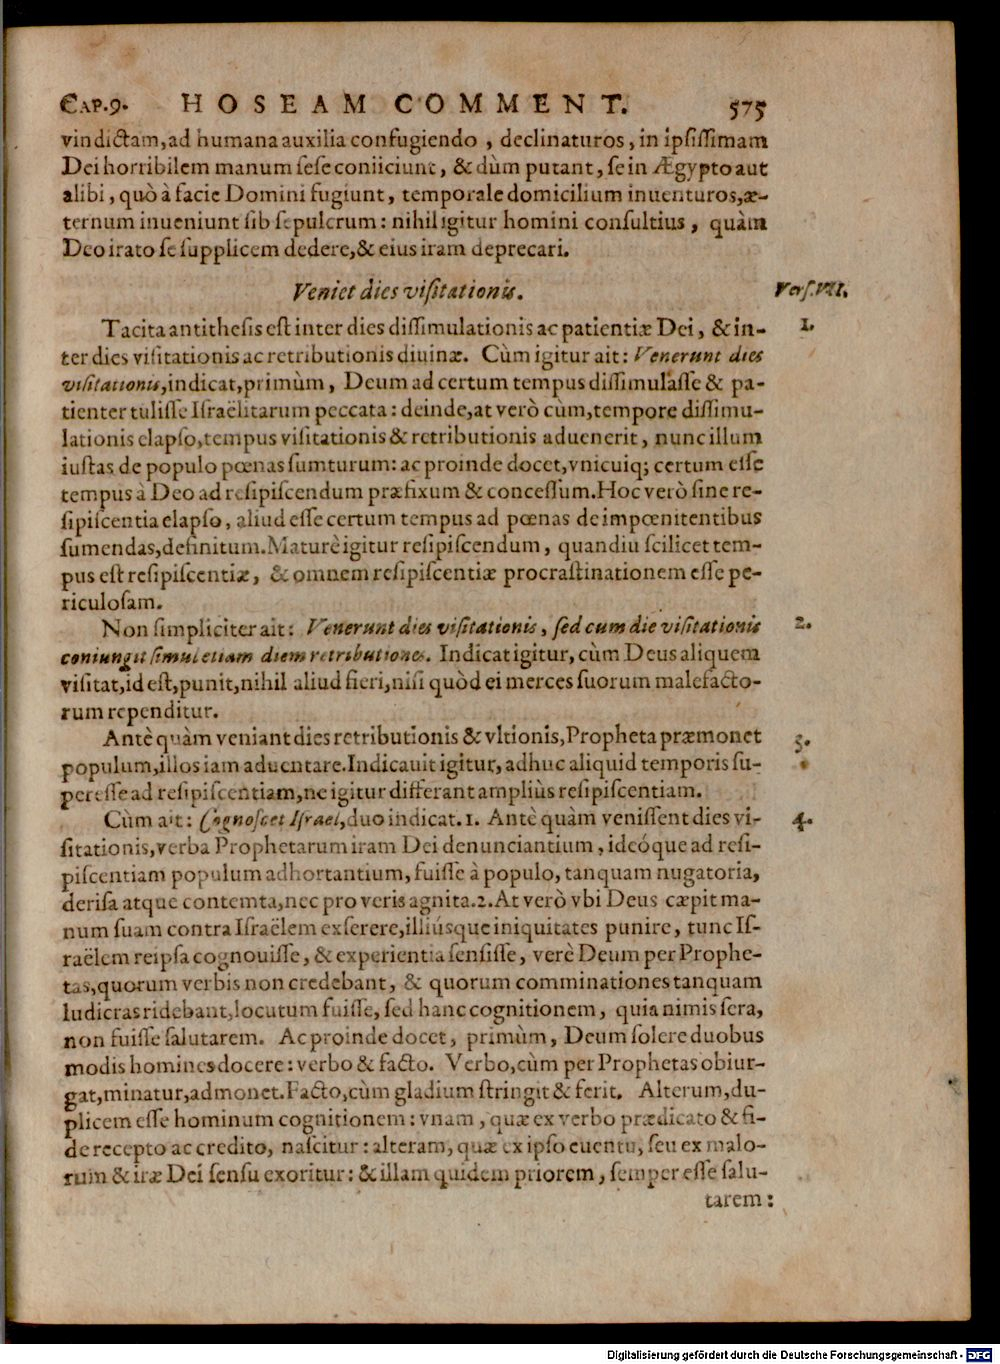 CAP.9. HOSEAM COMMENT. 575
vindictam, ad humana auxilia confugiendo, declinaturos, in ipsissimam
Dei horribilem manum sese coniiciunt, & dùm putant, se in Ægypto aut
alibi, quò à facie Domini fugiunt, temporale domicilium inuenturos, æ-
ternum inueniunt sib sepulcrum: nihil igitur homini consultius, quàm
Deo irato se supplicem dedere, & eius iram deprecari.
Veniet dies visitationis. Vers. VII.
Tacita antithesis est inter dies dissimulationis ac patientiæ Dei, & in- 1.
ter dies visitationis ac retributionis diuinæ. Cùm igitur ait: Venerunt dies
visitationis, indicat, primùm, Deum ad certum tempus dissimulasse & pa-
tienter tulisse Israëlitarum peccata: deinde, at verò cùm, tempore dissimu-
lationis elapso, tempus visitationis & retributionis aduenerit, nunc illum
iustas de populo pœnas sumturum: ac proinde docet, vnicuiq; certum esse
tempus à Deo ad resipiscendum præfixum & concessum. Hoc verò sine re-
sipiscentia elapso, aliud esse certum tempus ad pœnas de impœnitentibus
sumendas, definitum. Maturè igitur resipiscendum, quandiu scilicet tem-
pus est resipiscentiæ, & omnem resipiscentiæ procrastinationem esse pe-
riculosam.
Non simpliciter ait: Venerunt dies visitationis, sed cum die visitationis 2.
coniungit simul etiam diem retributiones. Indicat igitur, cùm Deus aliquem
visitat, id est, punit, nihil aliud fieri, nisi quòd ei merces suorum malefacto-
rum rependitur.
Antè quàm veniant dies retributionis & vltionis, Propheta præmonet 3.
populum, illos iam aduentare. Indicauit igitur, adhuc aliquid temporis su-
peresse ad resipiscentiam, ne igitur differant ampliùs resipiscentiam.
Cùm ait: Cognoscet Israel, duo indicat. 1. Antè quàm venissent dies vi- 4.
sitationis, verba Prophetarum iram Dei denunciantium, ideóque ad resi-
piscentiam populum adhortantium, fuisse à populo, tanquam nugatoria,
derisa atque contemta, nec pro veris agnita. 2. At verò vbi Deus cæpit ma-
num suam contra Israëlem exserere, illiúsque iniquitates punire, tunc Is-
raëlem reipsa cognouisse, & experientia sensisse, verè Deum per Prophe-
tas, quorum verbis non credebant, & quorum comminationes tanquam
ludicras ridebant, locutum fuisse, sed hanc cognitionem, quia nimis sera,
non fuisse salutarem. Ac proinde docet, primùm, Deum solere duobus
modis homines docere: verbo & facto. Verbo, cùm per Prophetas obiur-
gat, minatur, admonet. Facto, cùm gladium stringit & ferit. Alterum, du-
plicem esse hominum cognitionem: vnam, quæ ex verbo prædicato & fi-
de recepto ac credito, nascitur: alteram, quæ ex ipso euentu, seu ex malo-
rum & iræ Dei sensu exoritur: & illam quidem priorem, semper esse salu-
tarem:
Digitalisierung gefördert durch die Deutsche Forschungsgemeinschaft - DFG